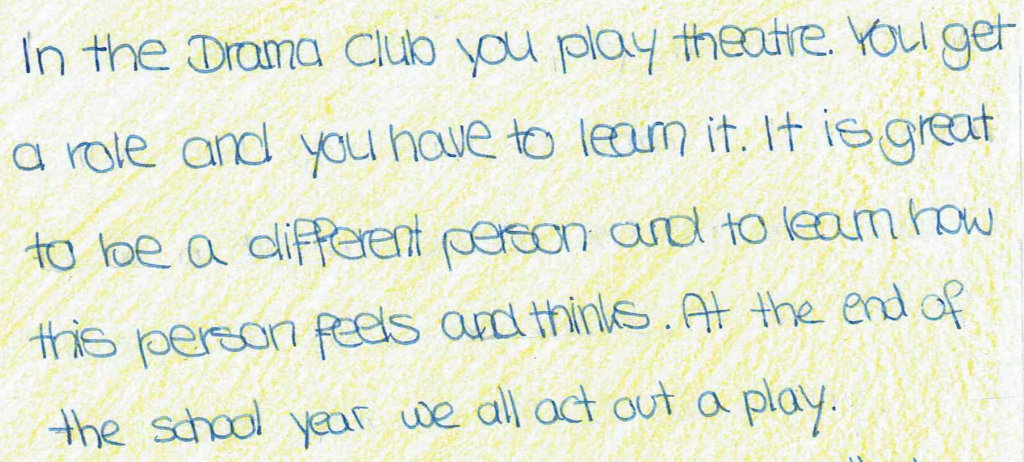 In the Drama Club you play theatre. You get
a role and you have to learn it. It is great
to be a different person and to learn how
this person feels and thinks. At the end of
the school year we all act out a play.